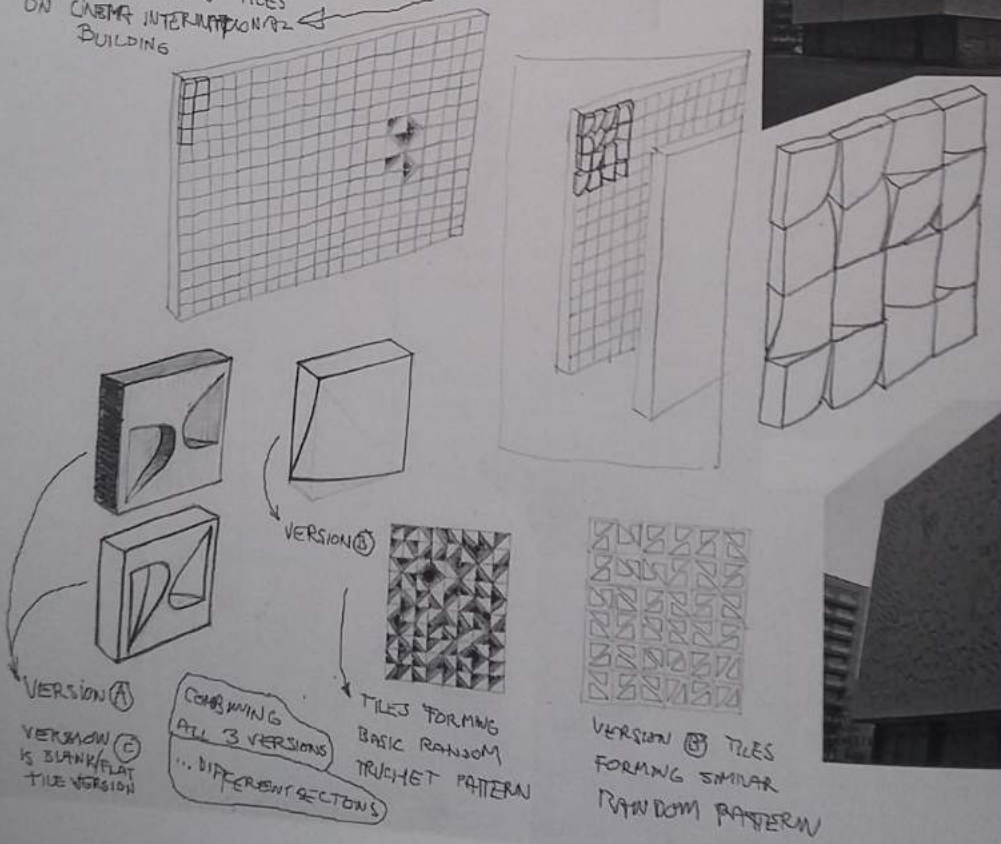 TILES
ON CINEMA INTERNATIONAL
BUILDING
VERSION B
VERSION A
VERSION C
IS BLANK/FLAT
TILE VERSION
COMBINING
ALL 3 VERSIONS
... DIFFERENT SECTIONS
TILES FORMING
BASIC RANDOM
TRUCHET PATTERN
VERSION B TILES
FORMING SIMILAR
RANDOM PATTERN